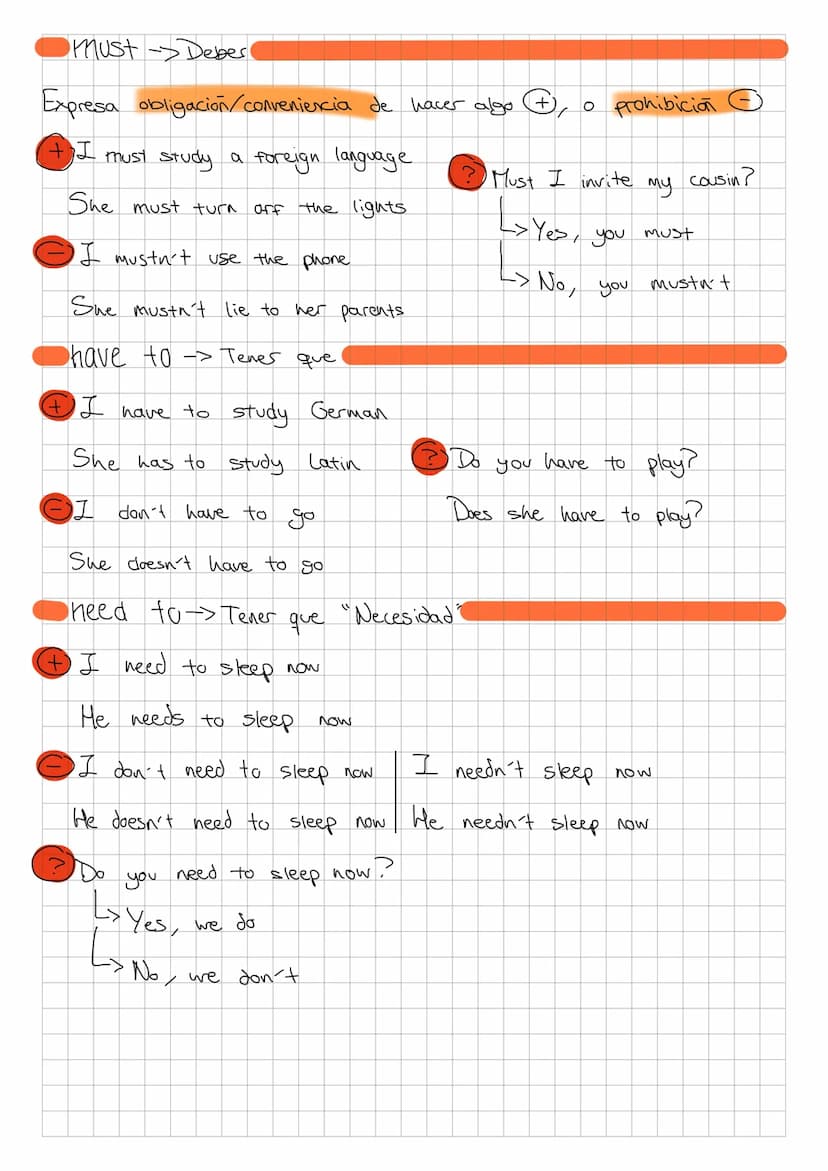 must -> Deber
Expresa obligación/conveniencia de hacer algo (+), o prohibición (-)
+ I must study a foreign language
She must turn off the lights
- I mustn't use the phone
She mustn't lie to her parents
? Must I invite my cousin?
-> Yes, you must
-> No, you mustn't
have to -> Tener que
+ I have to study German
She has to study Latin
- I don't have to go
She doesn't have to go
? Do you have to play?
Does she have to play?
need to -> Tener que "Necesidad"
+ I need to sleep now
He needs to sleep now
- I don't need to sleep now | I needn't sleep now
He doesn't need to sleep now | He needn't sleep now
? Do you need to sleep now?
-> Yes, we do
-> No, we don't